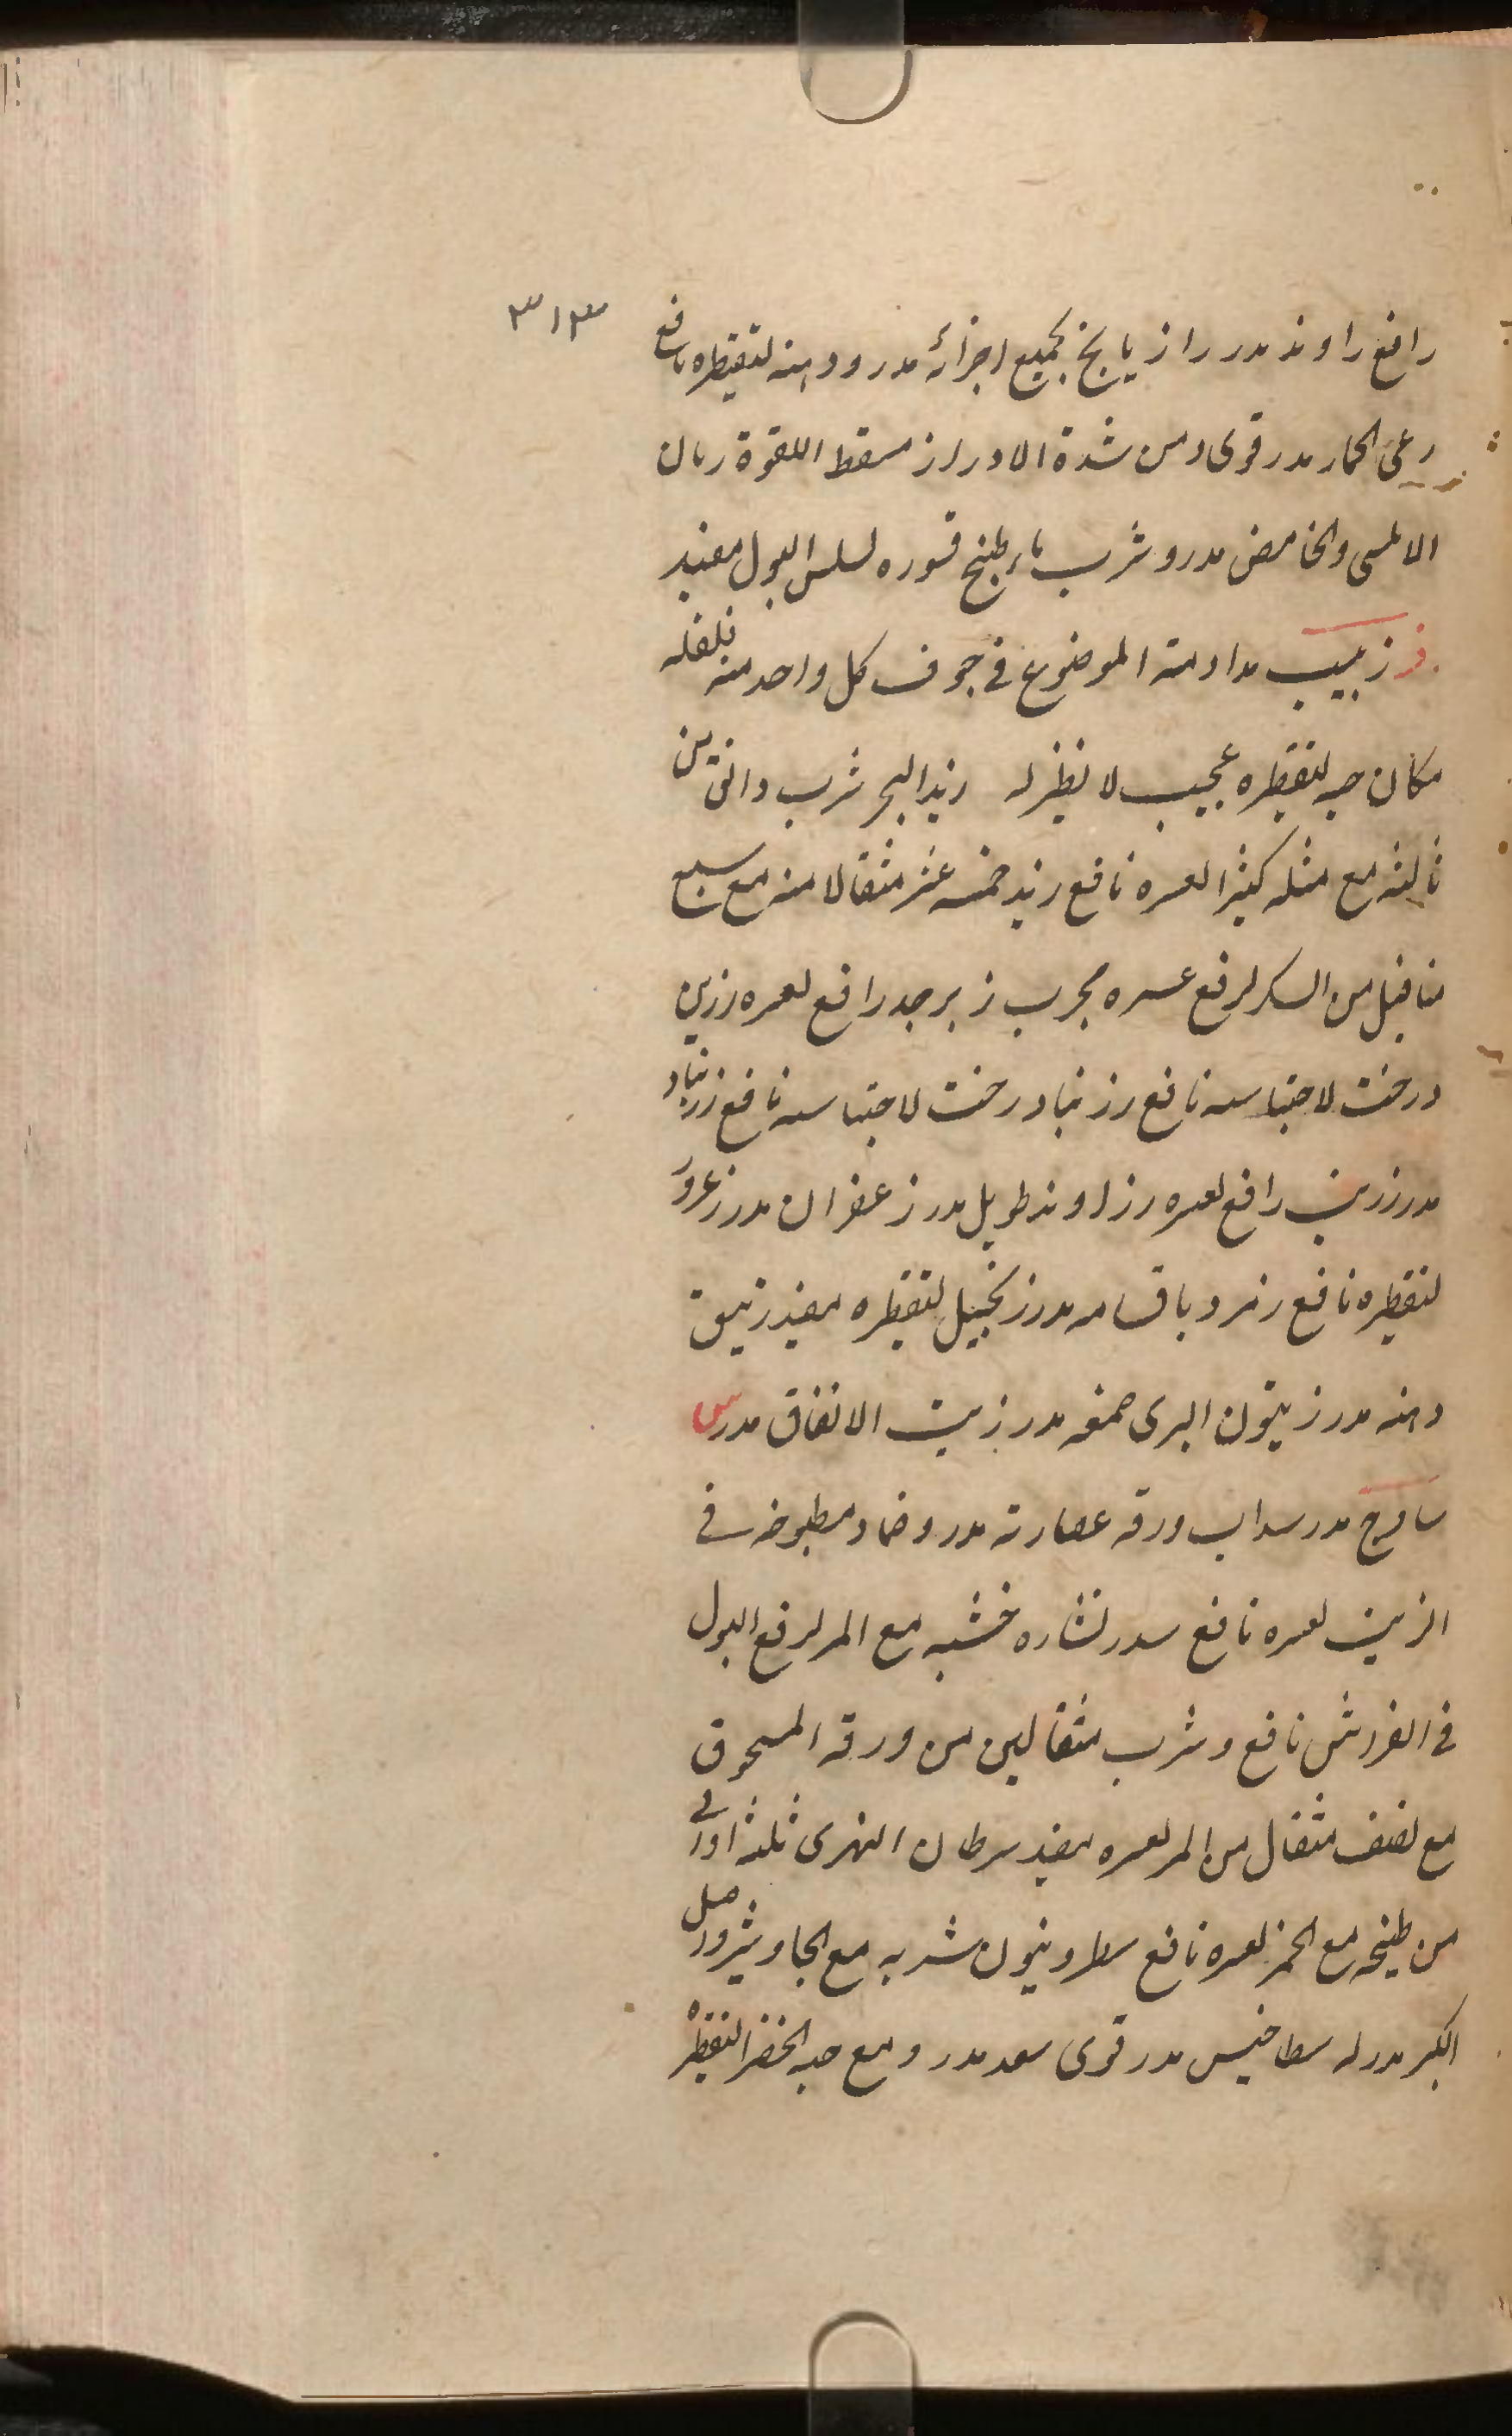 ٣١٣
رافع راوند مدر رازیانج بجمیع اجزائه مدر ودهنه لتقطیره نافع
رعی الحمار مدر قوی ومن شدة الادرار مسقط اللقوة رمان
الاملسی والحامض مدر وشرب ماء طبخ قشوره لسلس البول مفید
ز زبیب مداومته الموضوع فی جوف کل واحد منه فلفله
مکان حبه لتقطیره عجیب لا نظیر له زبد البحر شرب دانقین
ثالثه مع مثله کثیرا لعسره نافع زبد خمسه عشر مثقالا منه مع سبع
مثاقیل من السکر لرفع عسره مجرب زبرجد رافع لعسره زرین
درخت لاحتباسه نافع زرنباد درخت لاحتباسه نافع زرنباد
مدر زرنب رافع لعسره زراوند طویل مدر زعفران مدر زعرور
لتقطیره نافع زمرد باقسامه مدر زنجبیل لتقطیره مفید زنبق
دهنه مدر زیتون البری صمغه مدر زیت الانفاق مدر س
ساذج مدر سداب ورقه عصارته مدر وضماد مطبوخه فی
الزیت لعسره نافع سدر نشاره خشبه مع المر لرفع البول
فی الفراش نافع وشرب مثقالین من ورقه المسحوق
مع نصف مثقال من المر لعسره مفید سرطان النهری ثلثه اواق
من طبخه مع الخمر لعسره نافع شربه مع الجاوشیر واصل
الکبر مدر له مدر قوی سعد مدر ومع حبه الخضرا لتقطیره